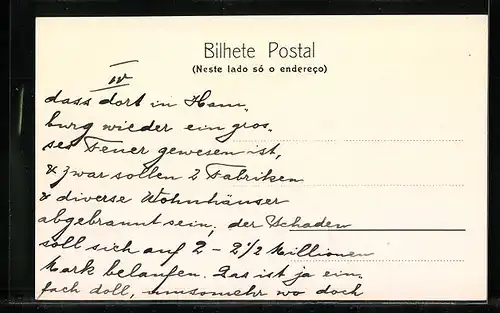 Bilhete Postal
(Neste lado só o endereço)
IV
dass dort in Ham-
burg wieder ein gros-
ses Feuer gewesen ist,
& zwar sollen 2 Fabriken
& diverse Wohnhäuser
abgebrannt sein, der Schaden
soll sich auf 2 - 2 1/2 Millionen
Mark belaufen. Das ist ja ein-
fach doll, umsomehr wo doch